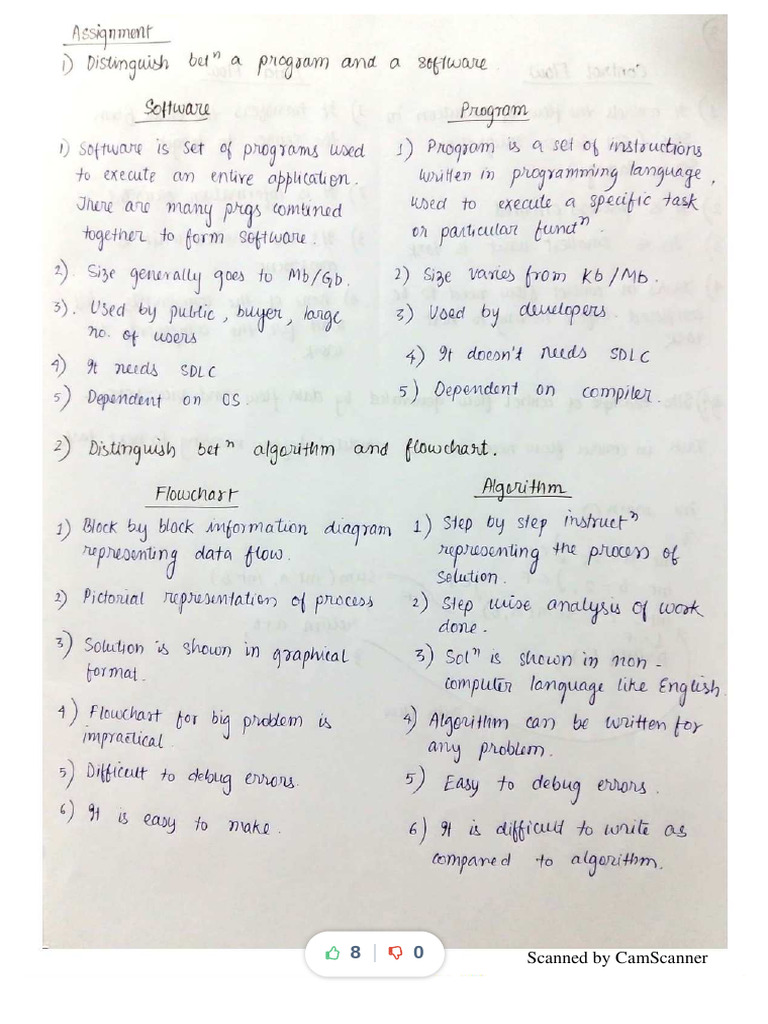 Assignment
1) Distinguish betⁿ a program and a software.
Software
1) Software is set of programs used
to execute an entire application.
There are many prgs combined
together to form software.
2). Size generally goes to Mb/Gb.
3). Used by public, buyer, large
no. of users
4) It needs SDLC
5) Dependent on OS.
Program
1) Program is a set of instructions
written in programming language,
used to execute a specific task
or particular functⁿ.
2) Size varies from Kb/Mb.
3) Used by developers.
4) It doesn't needs SDLC
5) Dependent on compiler.
2) Distinguish betⁿ algorithm and flowchart.
Flowchart
1) Block by block information diagram
representing data flow.
2) Pictorial representation of process
3) Solution is shown in graphical
format.
4) Flowchart for big problem is
impractical.
5) Difficult to debug errors.
6) It is easy to make.
Algorithm
1) Step by step instructⁿ
representing the process of
solution.
2) Step wise analysis of work
done.
3) Solⁿ is shown in non-
computer language like English.
4) Algorithm can be written for
any problem.
5) Easy to debug errors.
6) It is difficult to write as
compared to algorithm.
8 0
Scanned by CamScanner